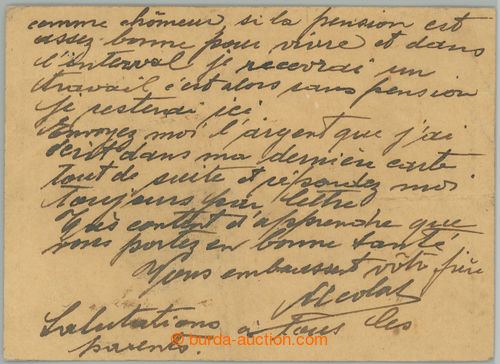 comme chômeur, si la pension est
assez bonne pour vivre et dans
l'interval je recevrai un
travail c'est alors sans pension
je resterai ici
Envoyez moi l'argent que j'ai
écrit dans ma dernière carte
tout de suite et répondez moi
toujours par lettre
très content d'apprendre que
vous portez en bonne santé
Vous embrassent vôtre frère
Nicolas
Salutations à tous les
parents.
© burda-auction.com